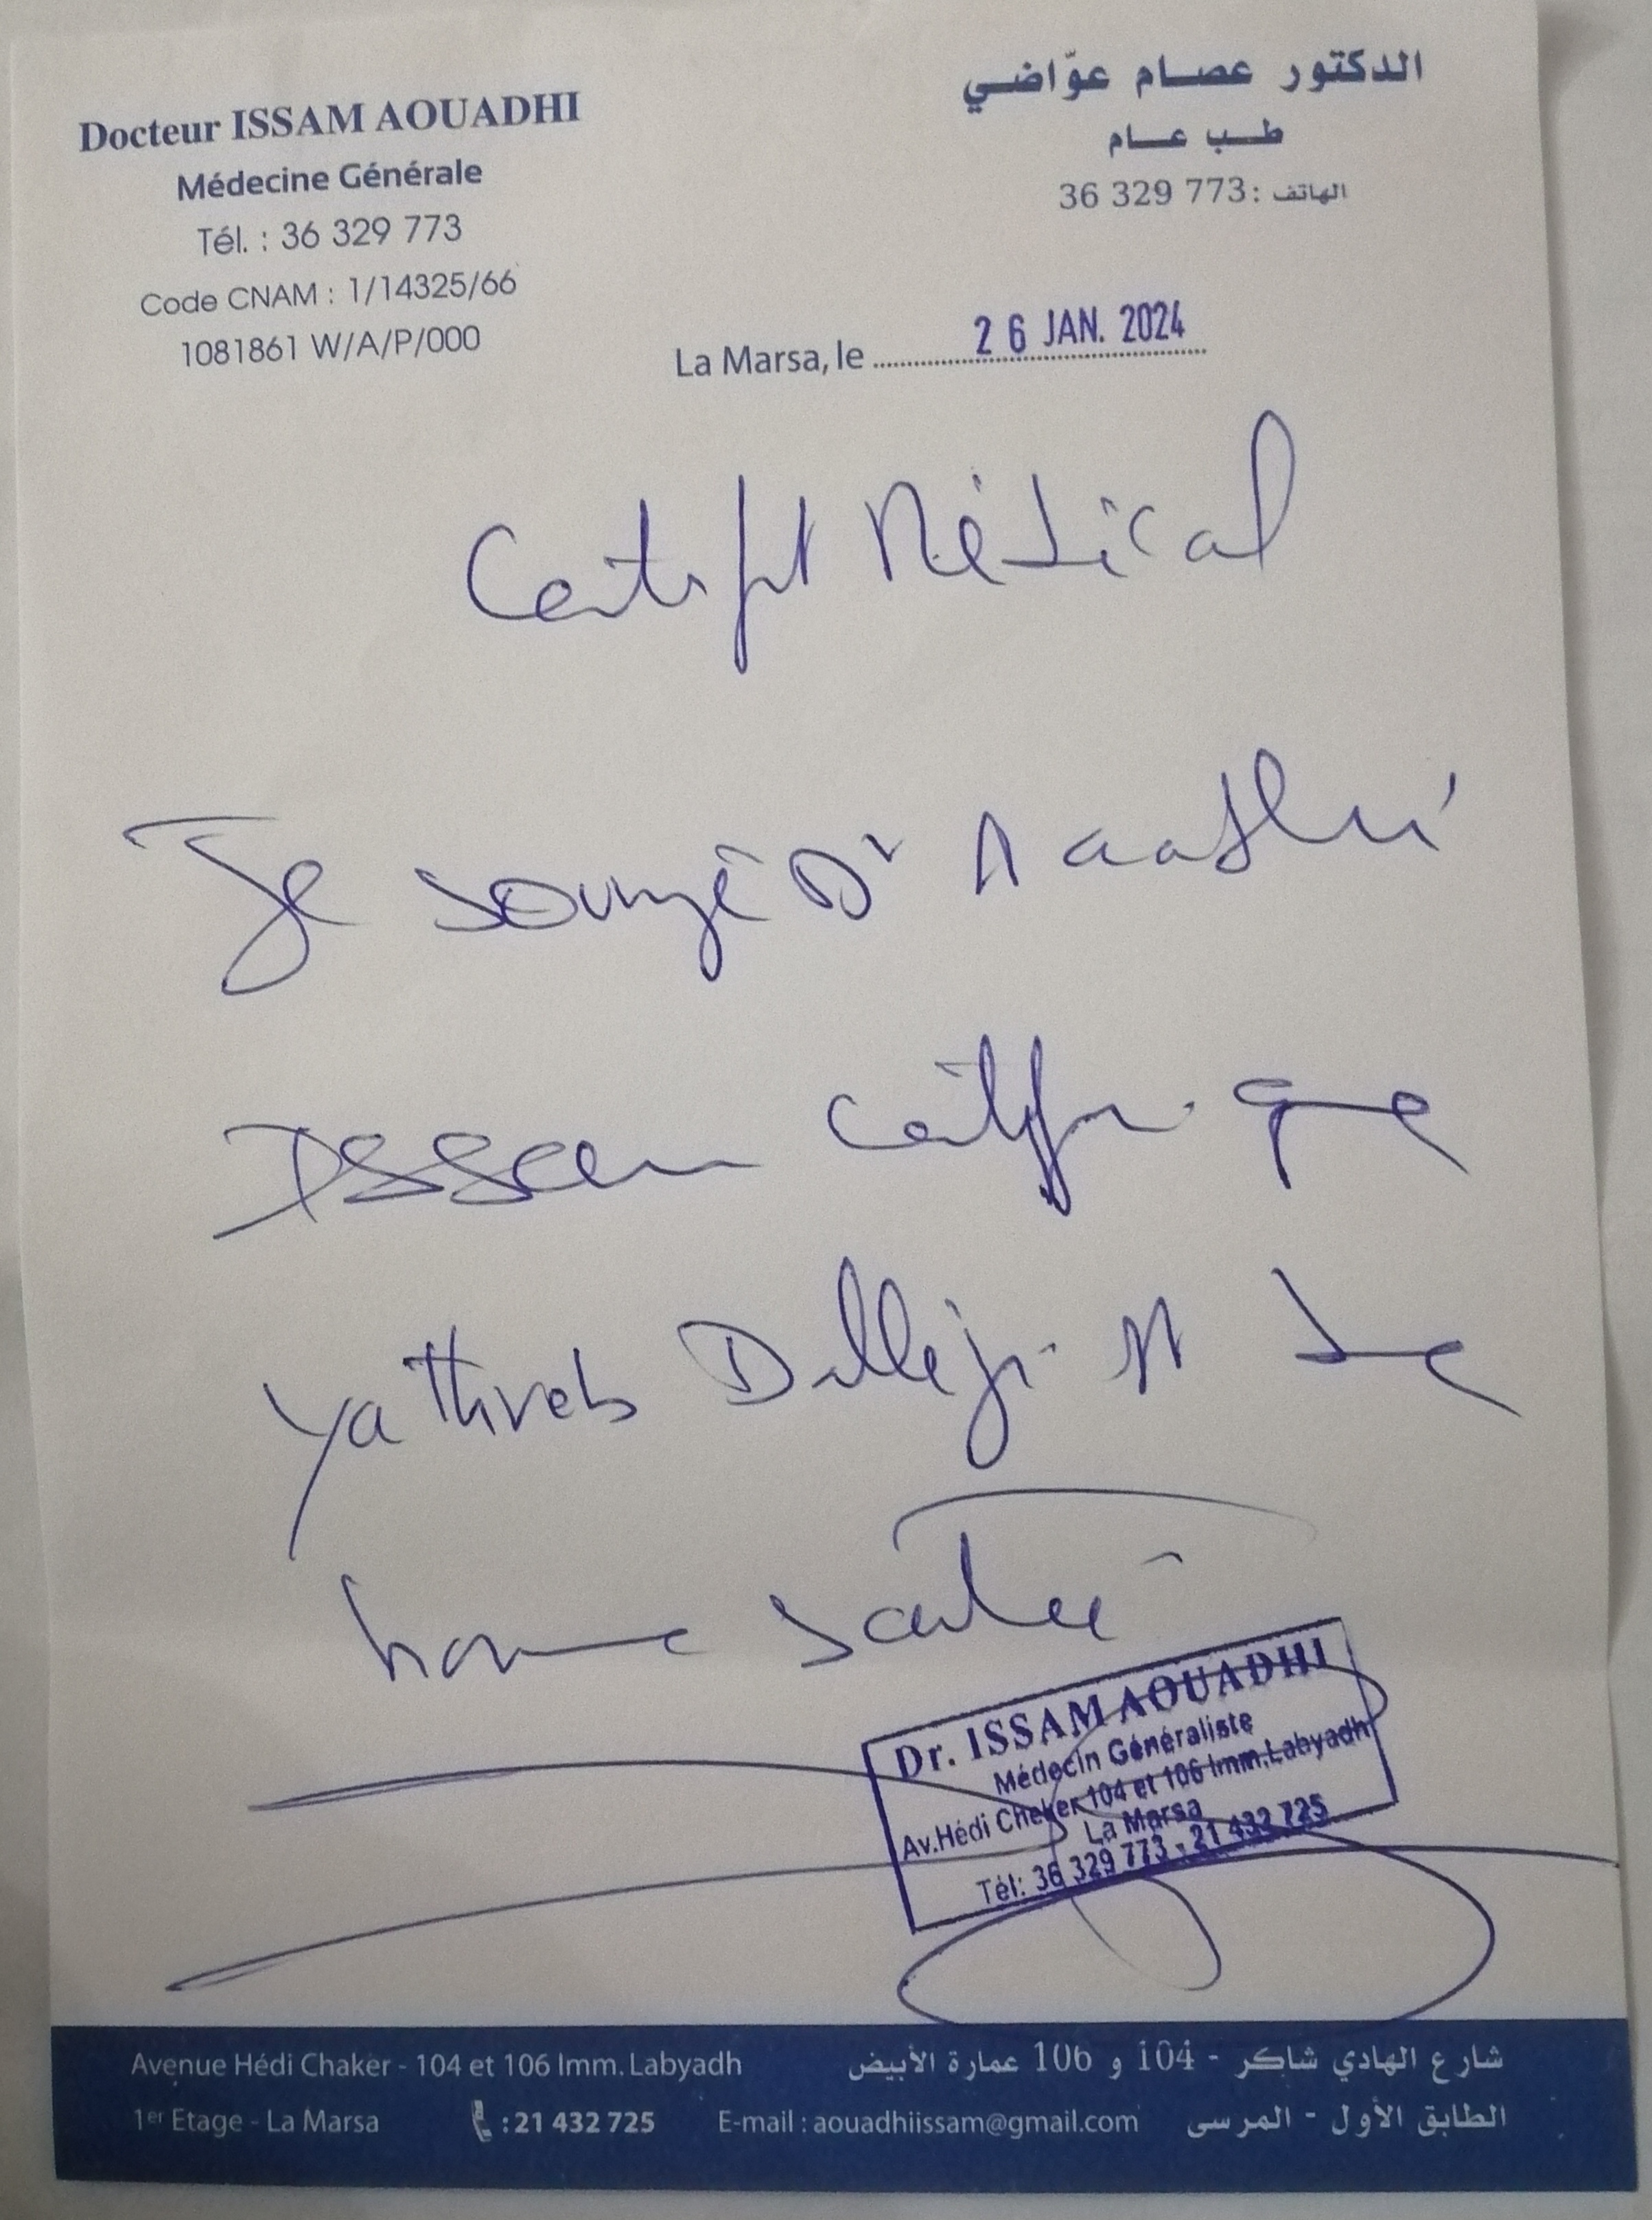 Docteur ISSAM AOUADHI
Médecine Générale
Tél. : 36 329 773
Code CNAM : 1/14325/66
1081861 W/A/P/000
الدكتور عصام عوّاضي
طب عام
الهاتف : 36 329 773
La Marsa, le 26 JAN. 2024
Certifit Médical
Je sousigé Dr Aouadhi
Issam certifie que
Yathreb Delleji est de
bonne santé
Dr. ISSAM AOUADHI
Médecin Généraliste
Av.Hédi Cheker 104 et 106 Imm.Labyadh
La Marsa
Tél: 36 329 773 - 21 432 725
Avenue Hédi Chaker - 104 et 106 Imm. Labyadh
شارع الهادي شاكر - 104 و 106 عمارة الأبيض
1er Etage - La Marsa : 21 432 725 E-mail : aouadhiissam@gmail.com
الطابق الأول - المرسى